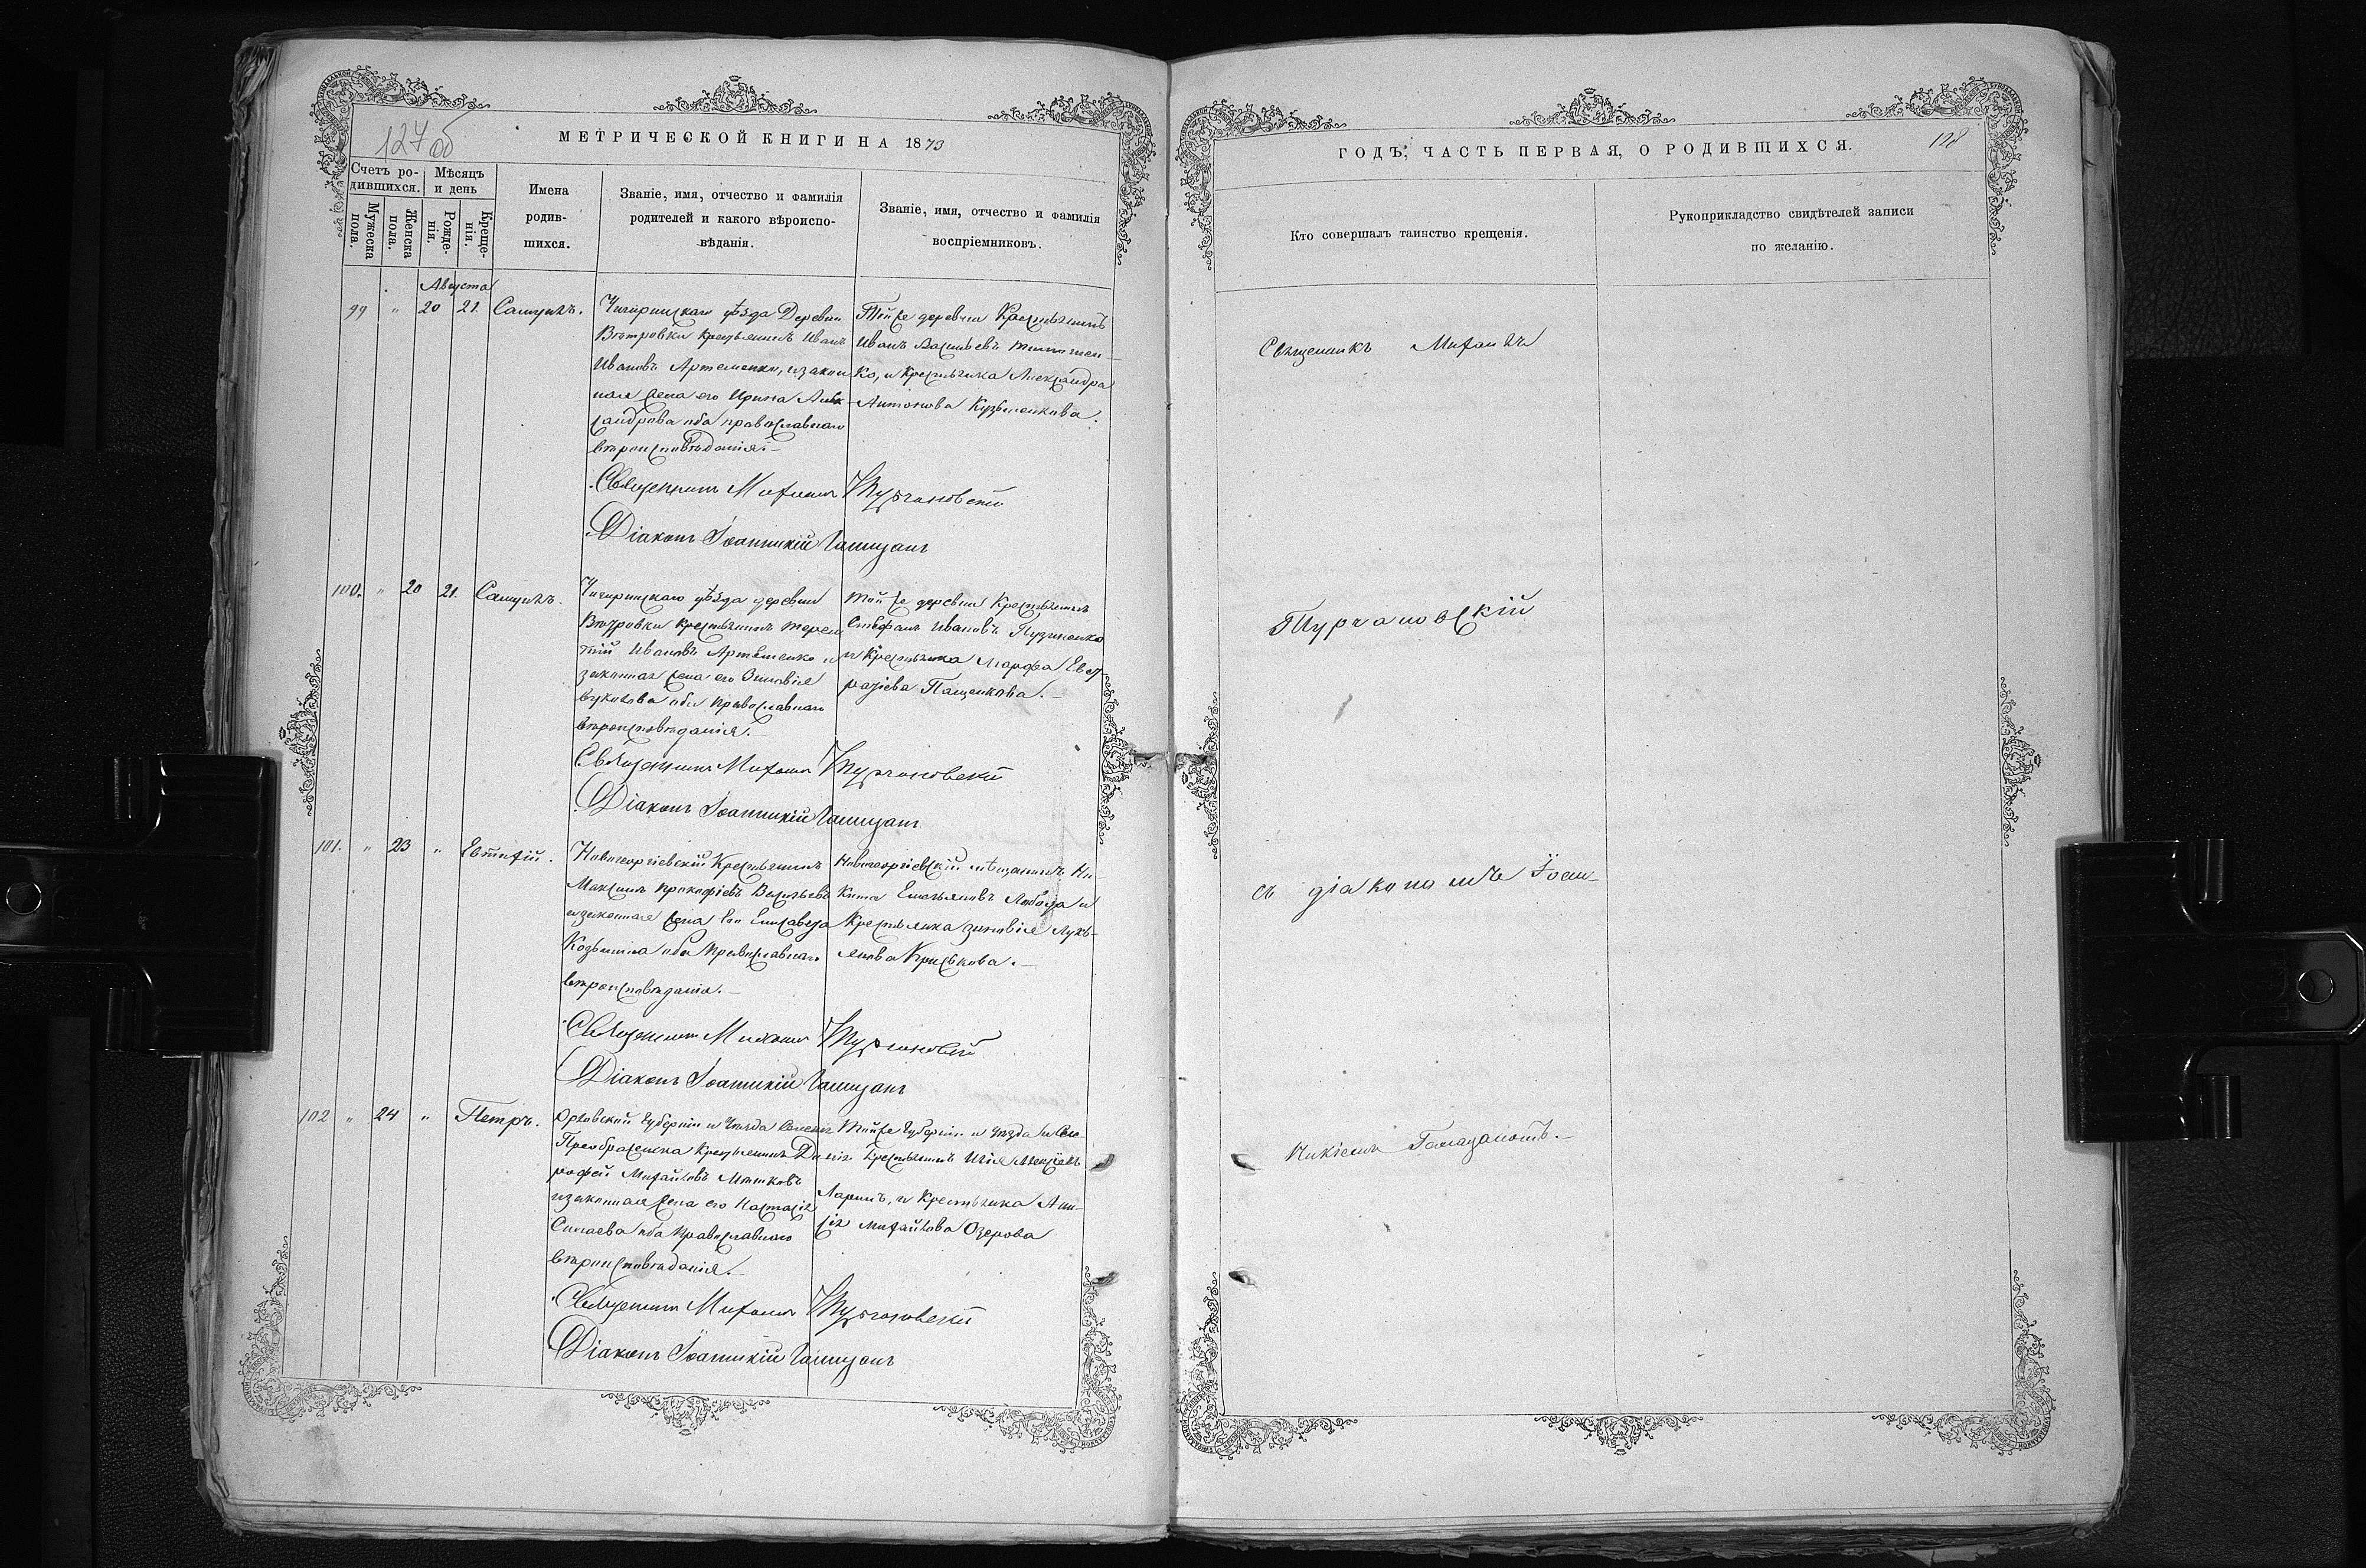 127 об
МЕТРИЧЕСКОЙ КНИГИ НА 1873
Счетъ ро-
дившихся.
Мѣсяцъ
и день
Мужеска
пола.
Женска
пола.
Рожде-
нія.
Креще-
нія.
Имена
родив-
шихся.
Званіе, имя, отчество и фамилія
родителей и какого вѣроиспо-
вѣданія.
Званіе, имя, отчество и фамилія
воспріемниковъ.
Августа
99 " 20 21. Самуилъ.
Чигиринскаго уѣзда Деревни
Вѣтровки крестьянинъ Иванъ
Ивановъ Артеменко, и закон
ная жена его Ирина Алек
сандрова оба православнаго
вѣроисповѣданія.
Той же деревни Крестьянинъ
Иванъ Васильевъ
ко, и Крестьянка Александра
Антонова Кузьменкова.
Священникъ Митрофанъ Турчановскій
Діаконъ Іоанникій
100. " 20 21. Самуилъ.
Чигиринскаго уѣзда деревни
Вѣтровки крестьянинъ Терен
тій Ивановъ Артеменко и
законная жена его Зиновія
оба Православнаго
вѣроисповѣданія.
Той же деревни Крестьянинъ
Стефанъ Ивановъ
и Крестьянка Марфа Евст
Пащенкова.
Священникъ Турчановскій
Діаконъ Іоанникій
101. " 23 " Евтихій.
Новогеоргіевскій Крестьянинъ
Максимъ Прокофіевъ Васильевъ
и законная жена его Елисавета
Козьмина оба Православнаго
вѣроисповѣданія.
Новогеоргіевскій мѣщанинъ Ни-
кита Емельяновъ и
Крестьянка Зиновія Лукь-
янова
Священникъ Турчановскій
Діаконъ Іоанникій
102 " 24 " Петръ.
Орловской Губерніи и Уѣзда Селенія
Преображенска Крестьянинъ До
рофей Михайловъ
и законная жена его Настасія
оба Православнаго
вѣроисповѣданія.
Той же Губерніи и Уѣзда и Се
ленія Крестьянинъ Илія Алексѣевъ
Ларинъ, и Крестьянка Ани-
сія Михайлова Озерова
Священникъ Турчановскій
Діаконъ Іоанникій
ГОДЪ, ЧАСТЬ ПЕРВАЯ, О РОДИВШИХСЯ.
128
Кто совершалъ таинство крещенія.
Рукоприкладство свидѣтелей записи
по желанію.
Священникъ
Турчановскій
съ діакономъ Іоан-
никіемъ